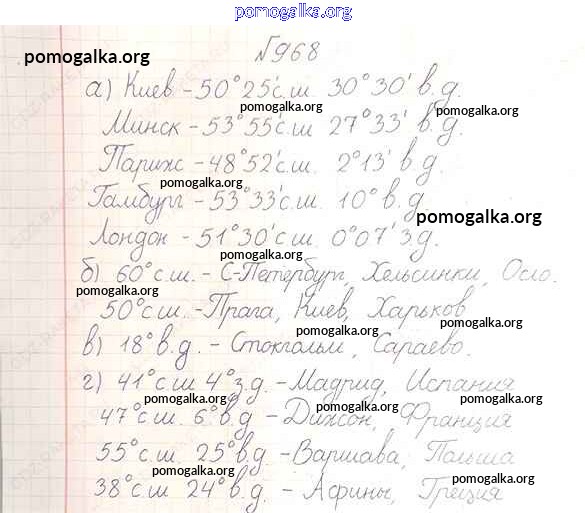 pomogalka.org
№968
pomogalka.org
а) Киев - 50°25'с.ш. 30°30' в.д.
pomogalka.org
Минск - 53°55'с.ш. 27°33' в.д.
pomogalka.org
Париж - 48°52'с.ш. 2°13' в.д.
pomogalka.org
Гамбург - 53°33'с.ш. 10° в.д.
pomogalka.org
Лондон - 51°30'с.ш. 0°07' з.д.
pomogalka.org
б) 60°с.ш. - С-Петербург, Хельсинки, Осло.
pomogalka.org
50°с.ш. - Прага, Киев, Харьков
pomogalka.org
в) 18°в.д. - Стокгольм, Сараево.
г) 41°с.ш 4°з.д. - Мадрид, Испания
pomogalka.org pomogalka.org
47°с.ш. 6°в.д - Дижон, Франция
pomogalka.org
55°с.ш. 25°в.д - Варшава, Польша
pomogalka.org pomogalka.org
38°с.ш 24°в.д. - Афины, Греция